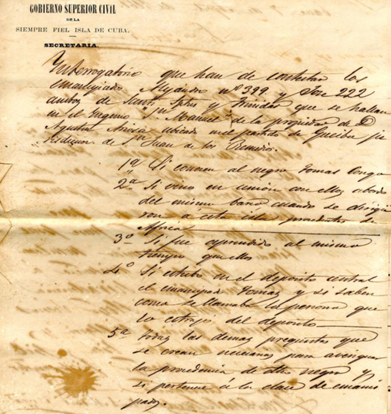 GOBIERNO SUPERIOR CIVIL
DE LA
SIEMPRE FIEL ISLA DE CUBA.
SECRETARIA.
Interrogatorio que han de contestar los
emancipados nº 399 y José 222
ambos de y Trinidad que se hallan
en el Ingenio Sn Manuel de la propiedad de D
Agustin ubicado en el partido de
de Sn Juan de los Remedios.
1ª Si conocen al negro Tomas Congo
2ª Si vino en union con ellos a bordo
del mismo barco cuando se
ron a esta isla procedentes de
Africa
3º Si fue aprendido al mismo
tiempo que ellos
4º Si estubo en el deposito central
el emancipado Tomas y si saben
como se llamaba la persona que
lo del deposito
5º todas las demas preguntas que
se crean necesarias para averiguar
la procedencia de dho negro y
si pertenece á la clase de emanci
pados.